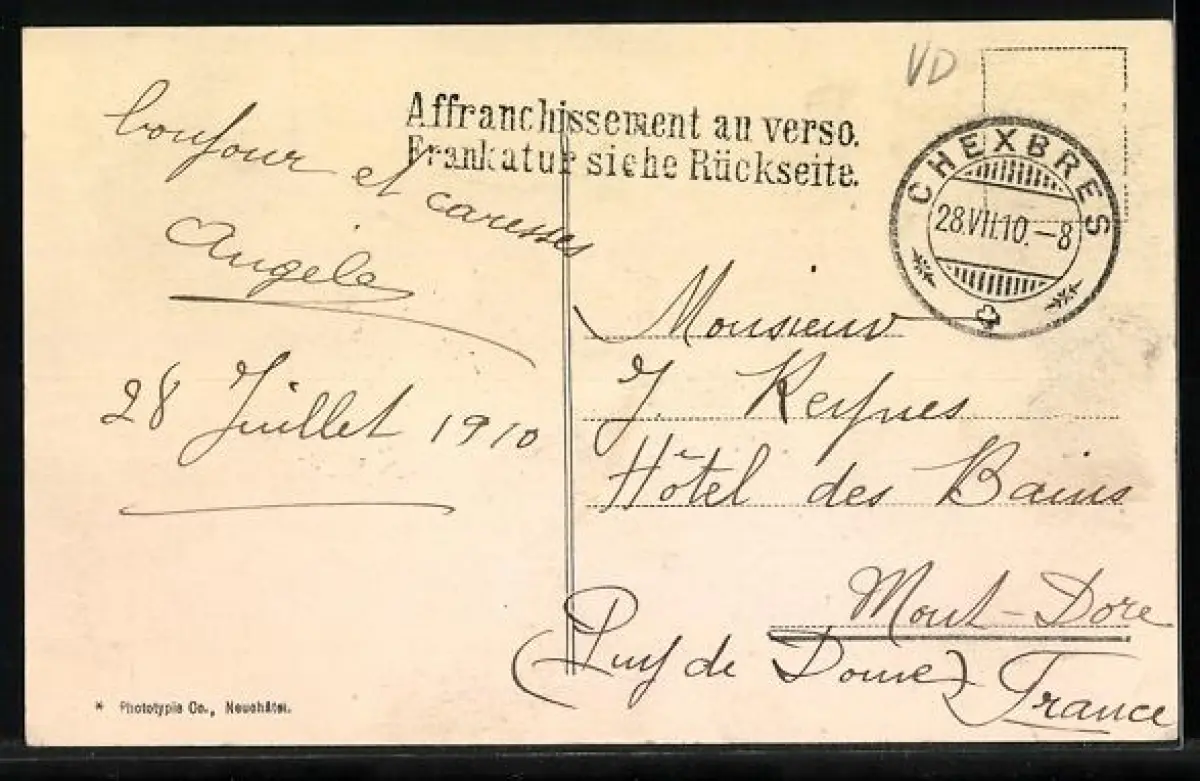 VD
Affranchissement au verso.
Frankatur siehe Rückseite.
CHEXBRES
28.VII.10.–8
bonjour et caresses
Angèle
28 Juillet 1910
Monsieur
J. Keynes
Hôtel des Bains
Mont-Dore
(Puy de Dome)
France
* Phototypie Co., Neuchâtel.